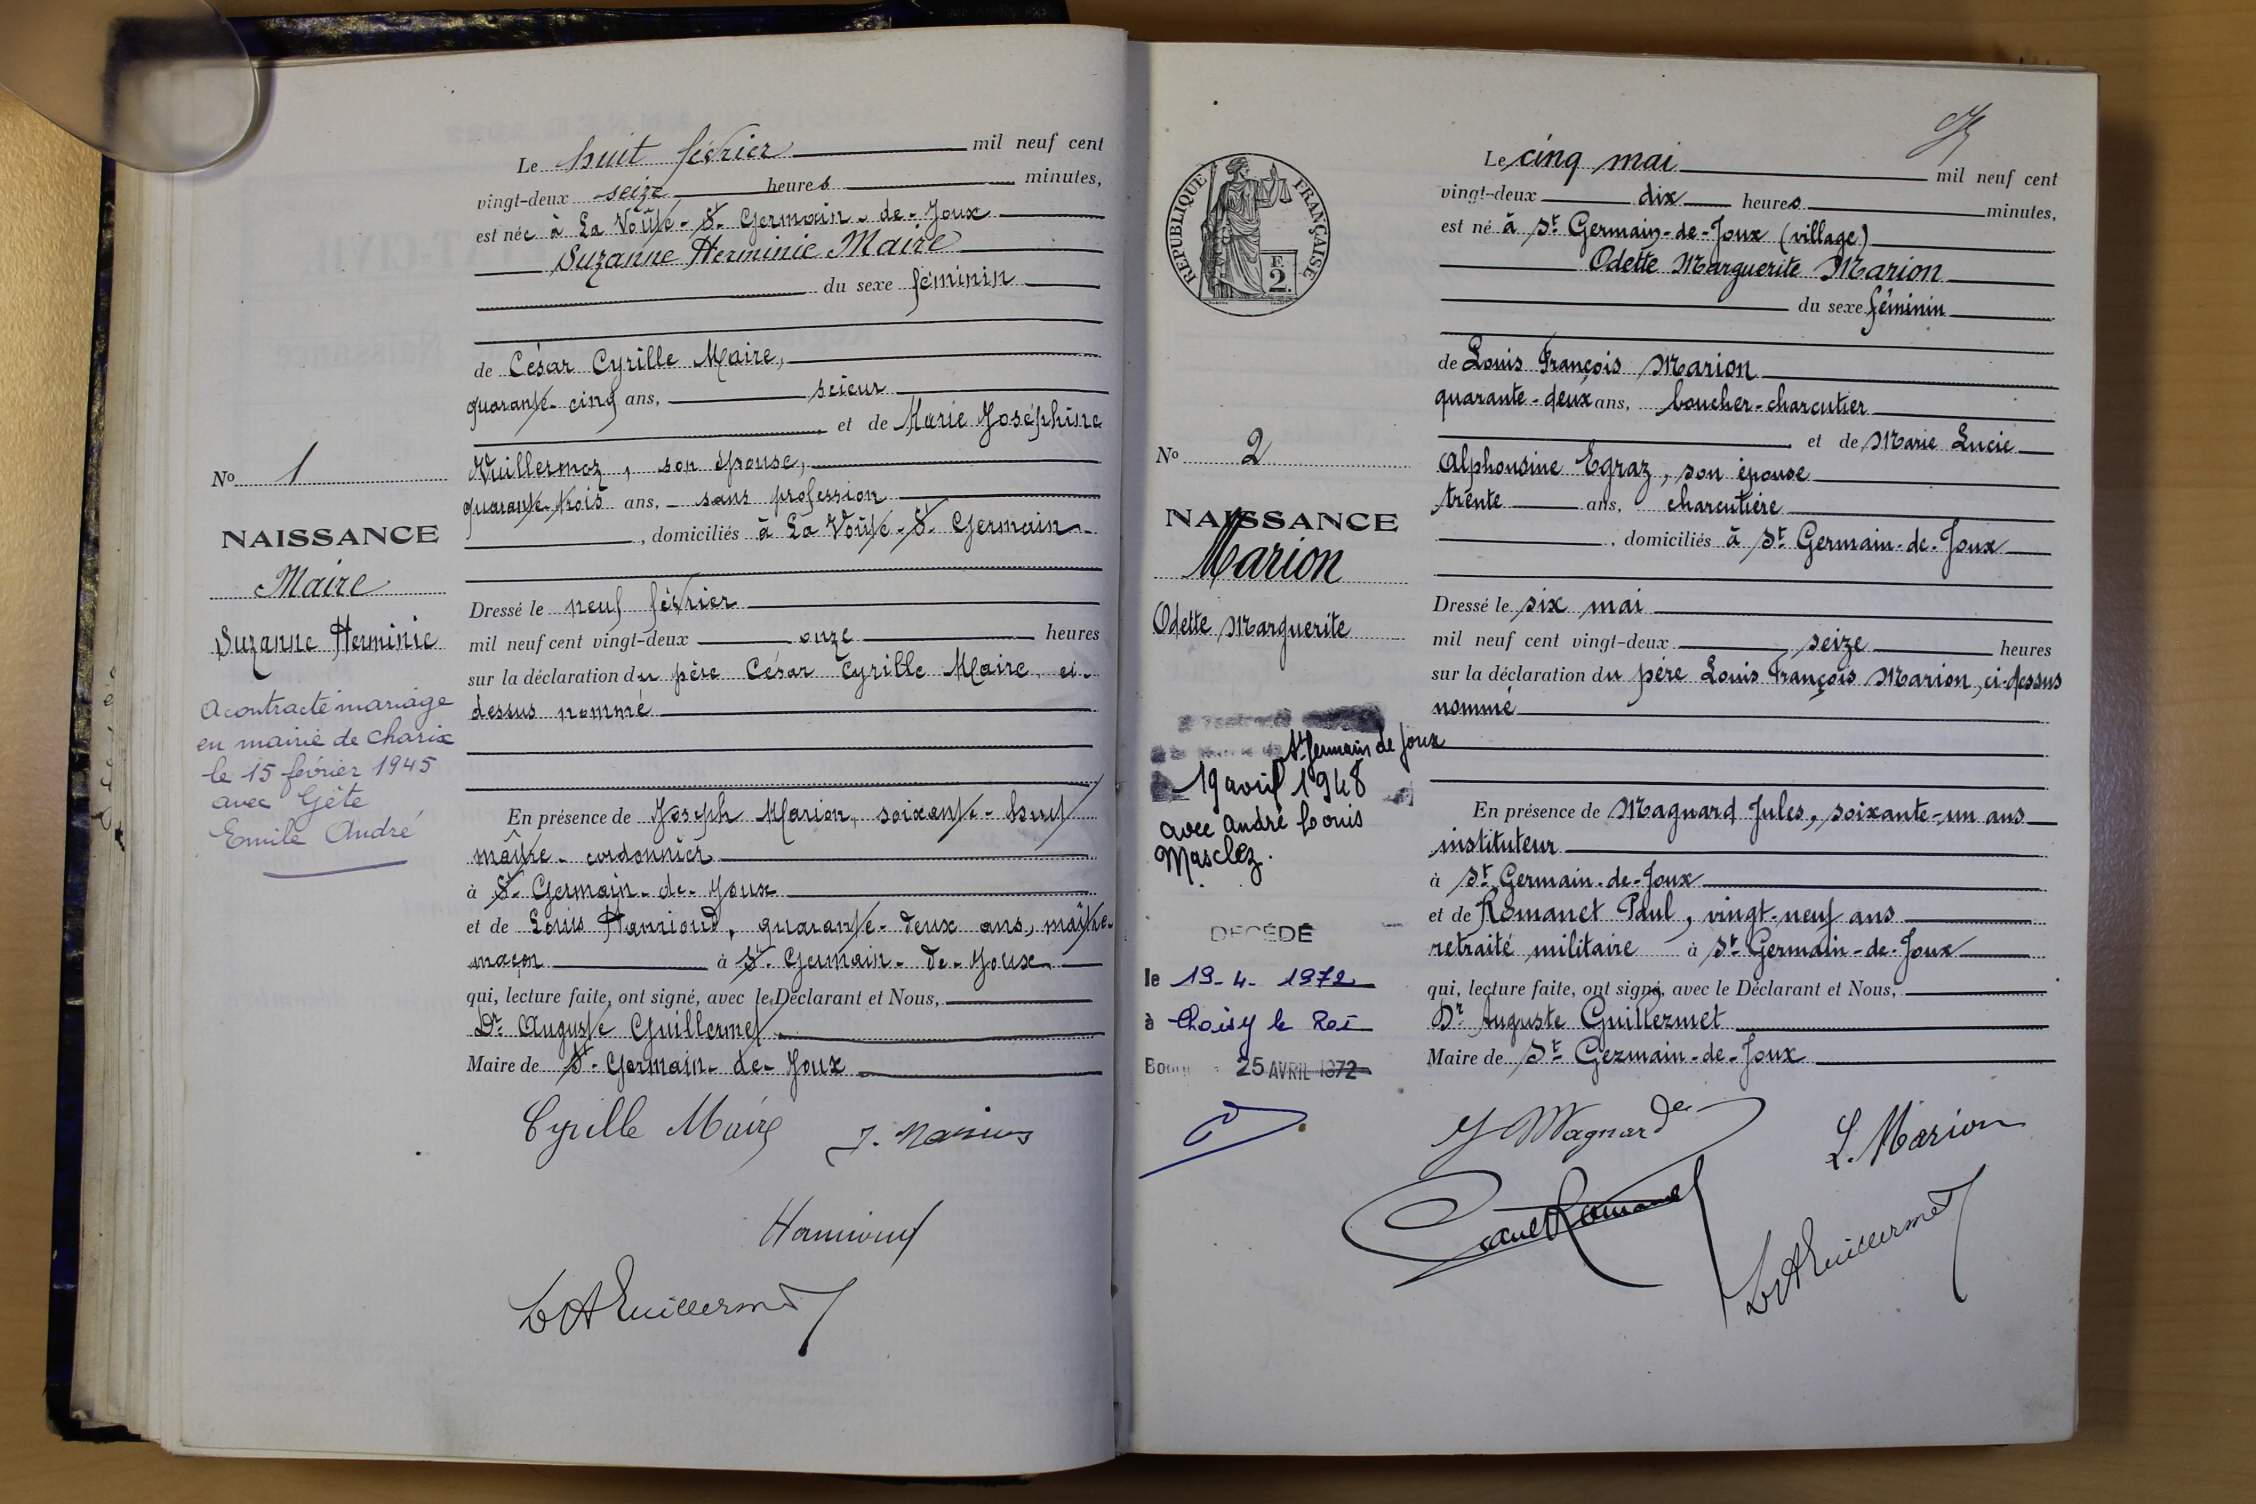 Le huit février mil neuf cent
vingt-deux seize heures minutes,
est née à La Voûte-St-Germain-de-Joux
Suzanne Herminie Maire
du sexe féminin
de César Cyrille Maire,
quarante-cinq ans, scieur
et de Marie Joséphine
Vuillermoz, son épouse,
quarante-trois ans, sans profession
, domiciliés à La Voûte-St-Germain-
Dressé le neuf février
mil neuf cent vingt-deux onze heures
sur la déclaration du père César Cyrille Maire ci-
dessus nommé
En présence de Joseph Marion, soixante-huit
maître-cordonnier
à St-Germain-de-Joux
et de Louis Hanriond, quarante-deux ans, maître-
maçon à St-Germain-de-Joux
qui, lecture faite, ont signé, avec le Déclarant et Nous,
Dr Auguste Guillermet
Maire de St-Germain-de-Joux
Cyrille Maire J. Marion
Hanriond
Dr A Guillermet
No 1
NAISSANCE
Maire
Suzanne Herminie
A contracté mariage
en mairie de Charix
le 15 février 1945
avec Gête
Emile André
RÉPUBLIQUE FRANÇAISE
F
2
Le cinq mai mil neuf cent
vingt-deux dix heures minutes,
est né à St Germain-de-Joux (village)
Odette Marguerite Marion
du sexe féminin
de Louis François Marion
quarante-deux ans, boucher-charcutier
et de Marie Lucie
Alphonsine Egraz, son épouse
trente ans, charcutière
, domiciliés à St Germain-de-Joux
Dressé le six mai
mil neuf cent vingt-deux seize heures
sur la déclaration du père Louis François Marion, ci-dessus
nommé
En présence de Magnard Jules, soixante-un ans
instituteur
à St Germain-de-Joux
et de Romanet Paul, vingt-neuf ans
retraité militaire à St Germain-de-Joux
qui, lecture faite, ont signé, avec le Déclarant et Nous,
Dr Auguste Guillermet
Maire de St Germain-de-Joux
J Magnard L. Marion
Paul Romanet
Dr A Guillermet
No 2
NAISSANCE
Marion
Odette Marguerite
St Germain de Joux
19 avril 1948
avec André Louis
Masclez.
DÉCÉDÉ
le 19-4-1972
à Choisy le Roi
25 AVRIL 1972